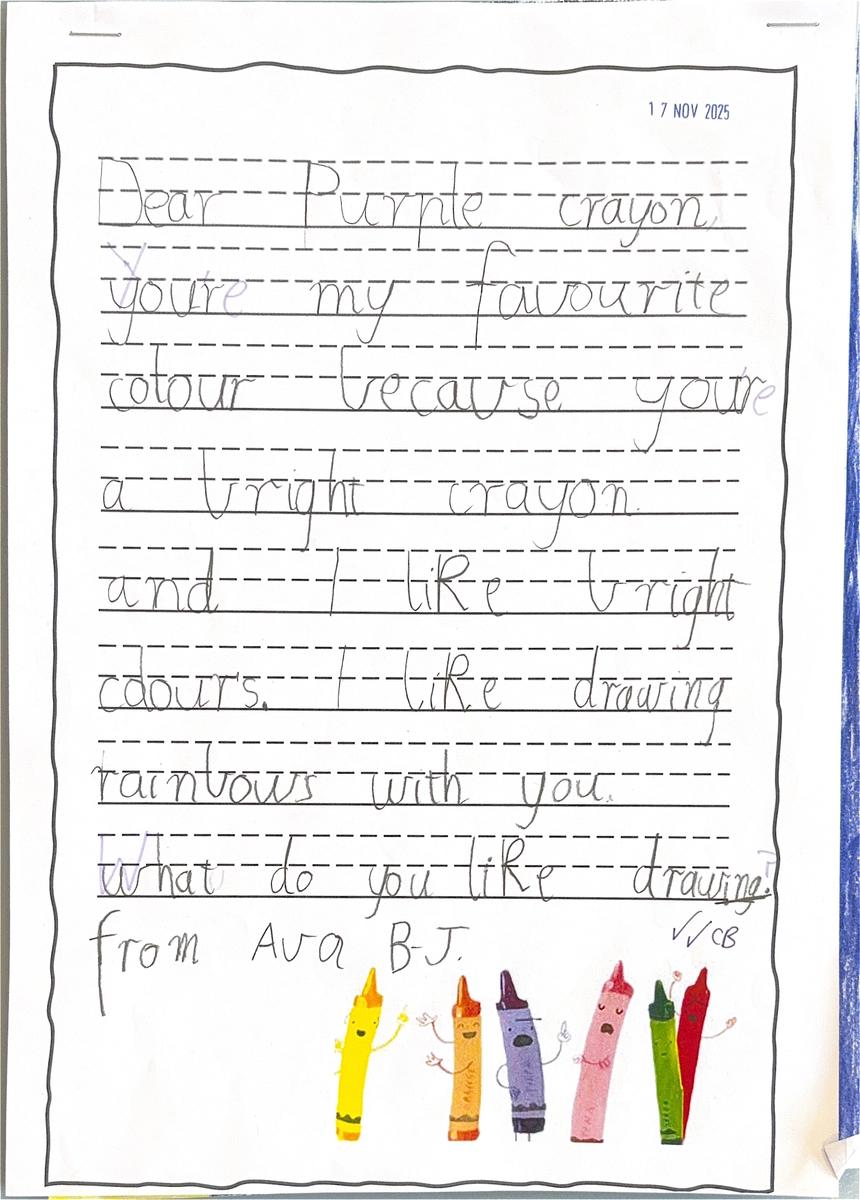 17 NOV 2025
Dear Purple crayon,
You're my favourite
colour because you're
a bright crayon.
and I like bright
colours. I like drawing
rainbows with you.
What do you like drawing?
from Ava B-J.
✓✓ CB